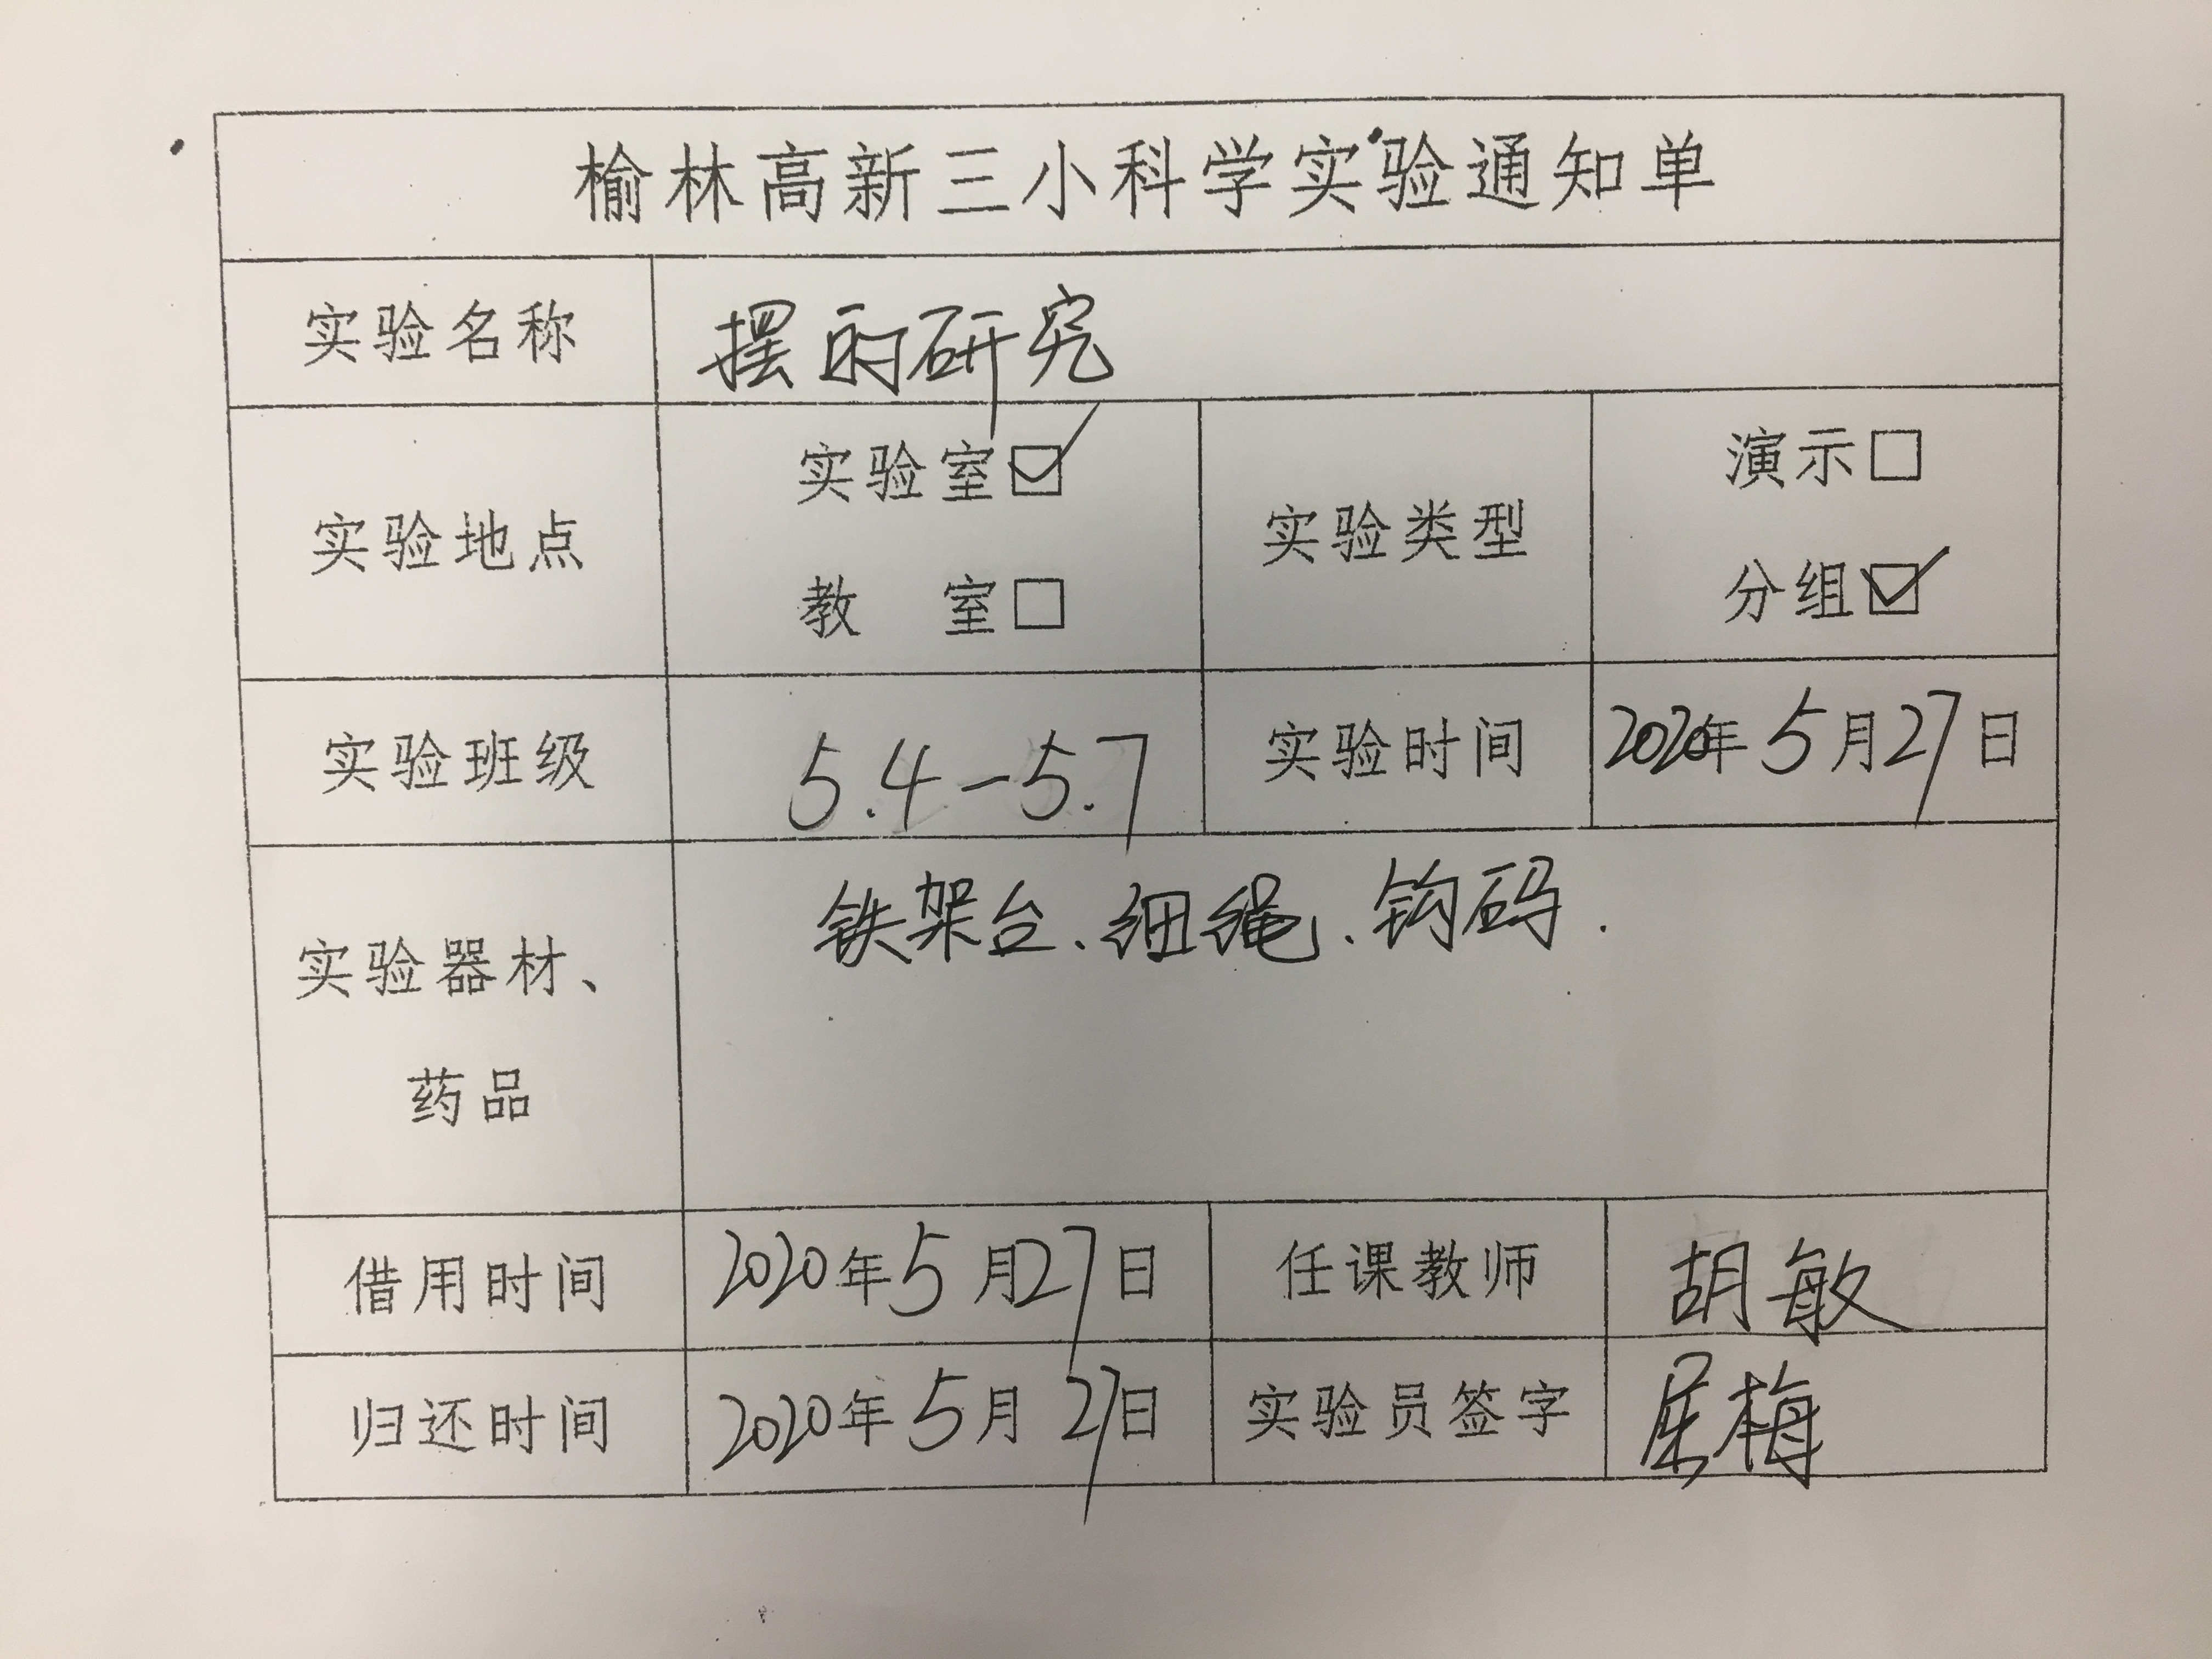 榆林高新三小科学实验通知单
实验名称 摆的研究
实验地点 实验室☑ 教 室□ 实验类型 演示□ 分组☑
实验班级 5.4-5.7 实验时间 2020年5月27日
实验器材、药品 铁架台、细绳、钩码.
借用时间 2020年5月27日 任课教师 胡敏
归还时间 2020年5月27日 实验员签字 屈梅